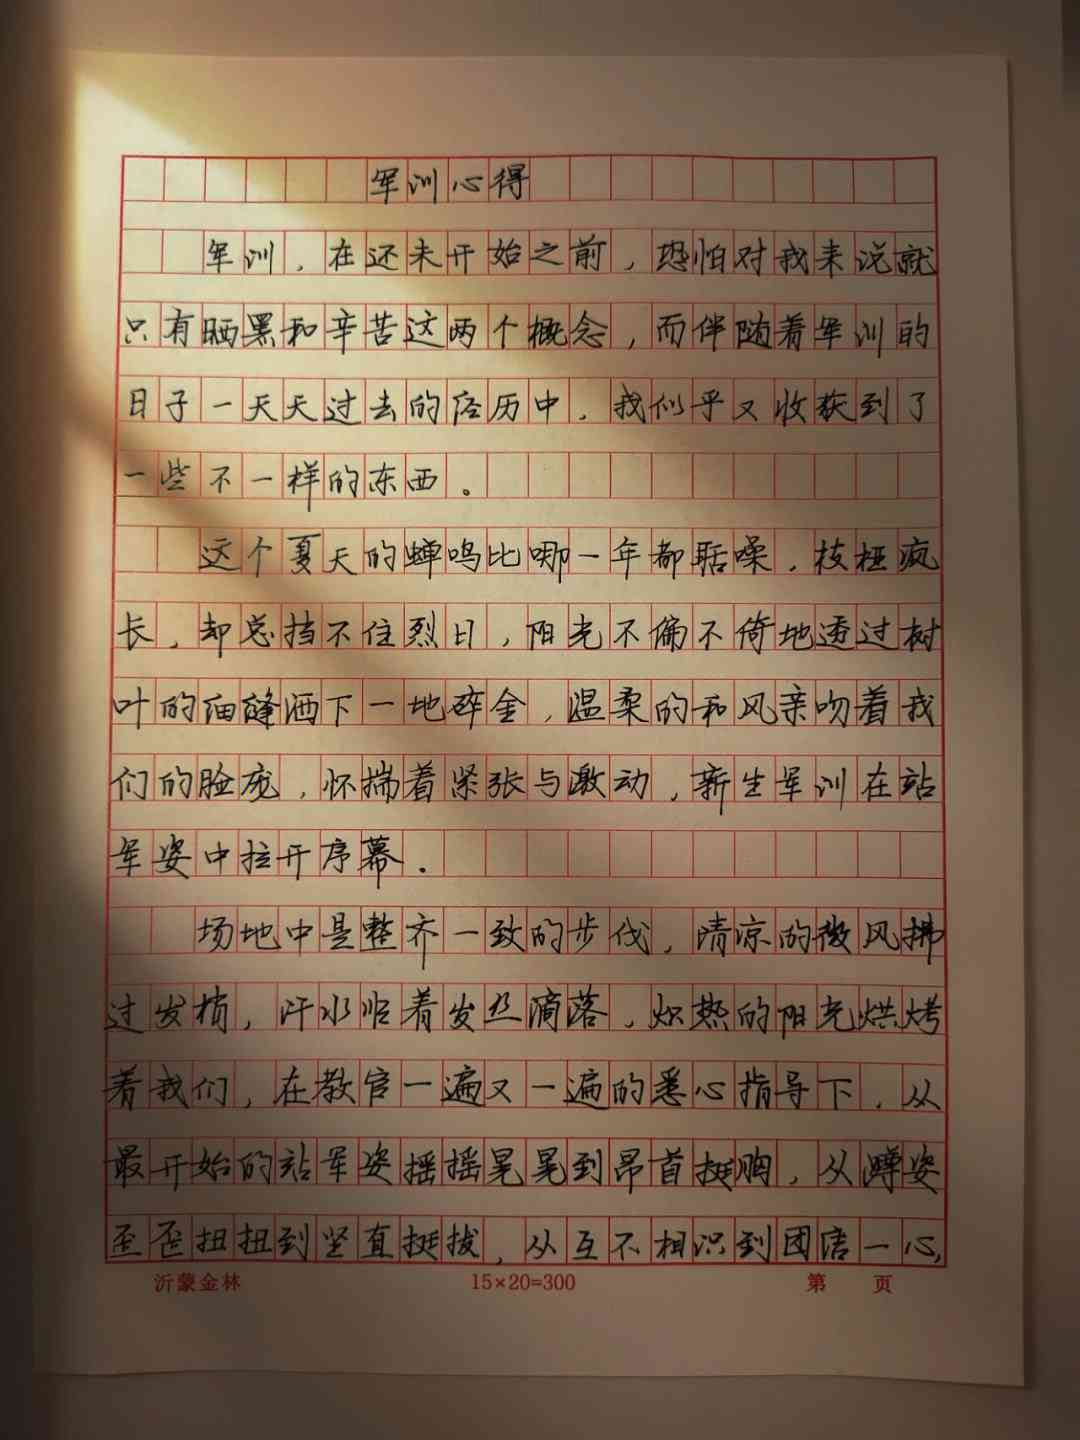 军训心得
军训，在还未开始之前，恐怕对我来说就
只有晒黑和辛苦这两个概念，而伴随着军训的
日子一天天过去的经历中，我们似乎又收获到了
一些不一样的东西。
这个夏天的蝉鸣比哪一年都聒噪，枝桠疯
长，却总挡不住烈日，阳光不偏不倚地透过树
叶的细缝洒下一地碎金，温柔的和风亲吻着我
们的脸庞，怀揣着紧张与激动，新生军训在站
军姿中拉开序幕。
场地中是整齐一致的步伐，清凉的微风拂
过发梢，汗水临着发丝滴落，炽热的阳光烘烤
着我们，在教官一遍又一遍的悉心指导下，从
最开始的站军姿摇摇晃晃到昂首挺胸，从蹲姿
歪歪扭扭到坚直挺拔，从互不相识到团结一心，
沂蒙金林 15×20=300 第 页